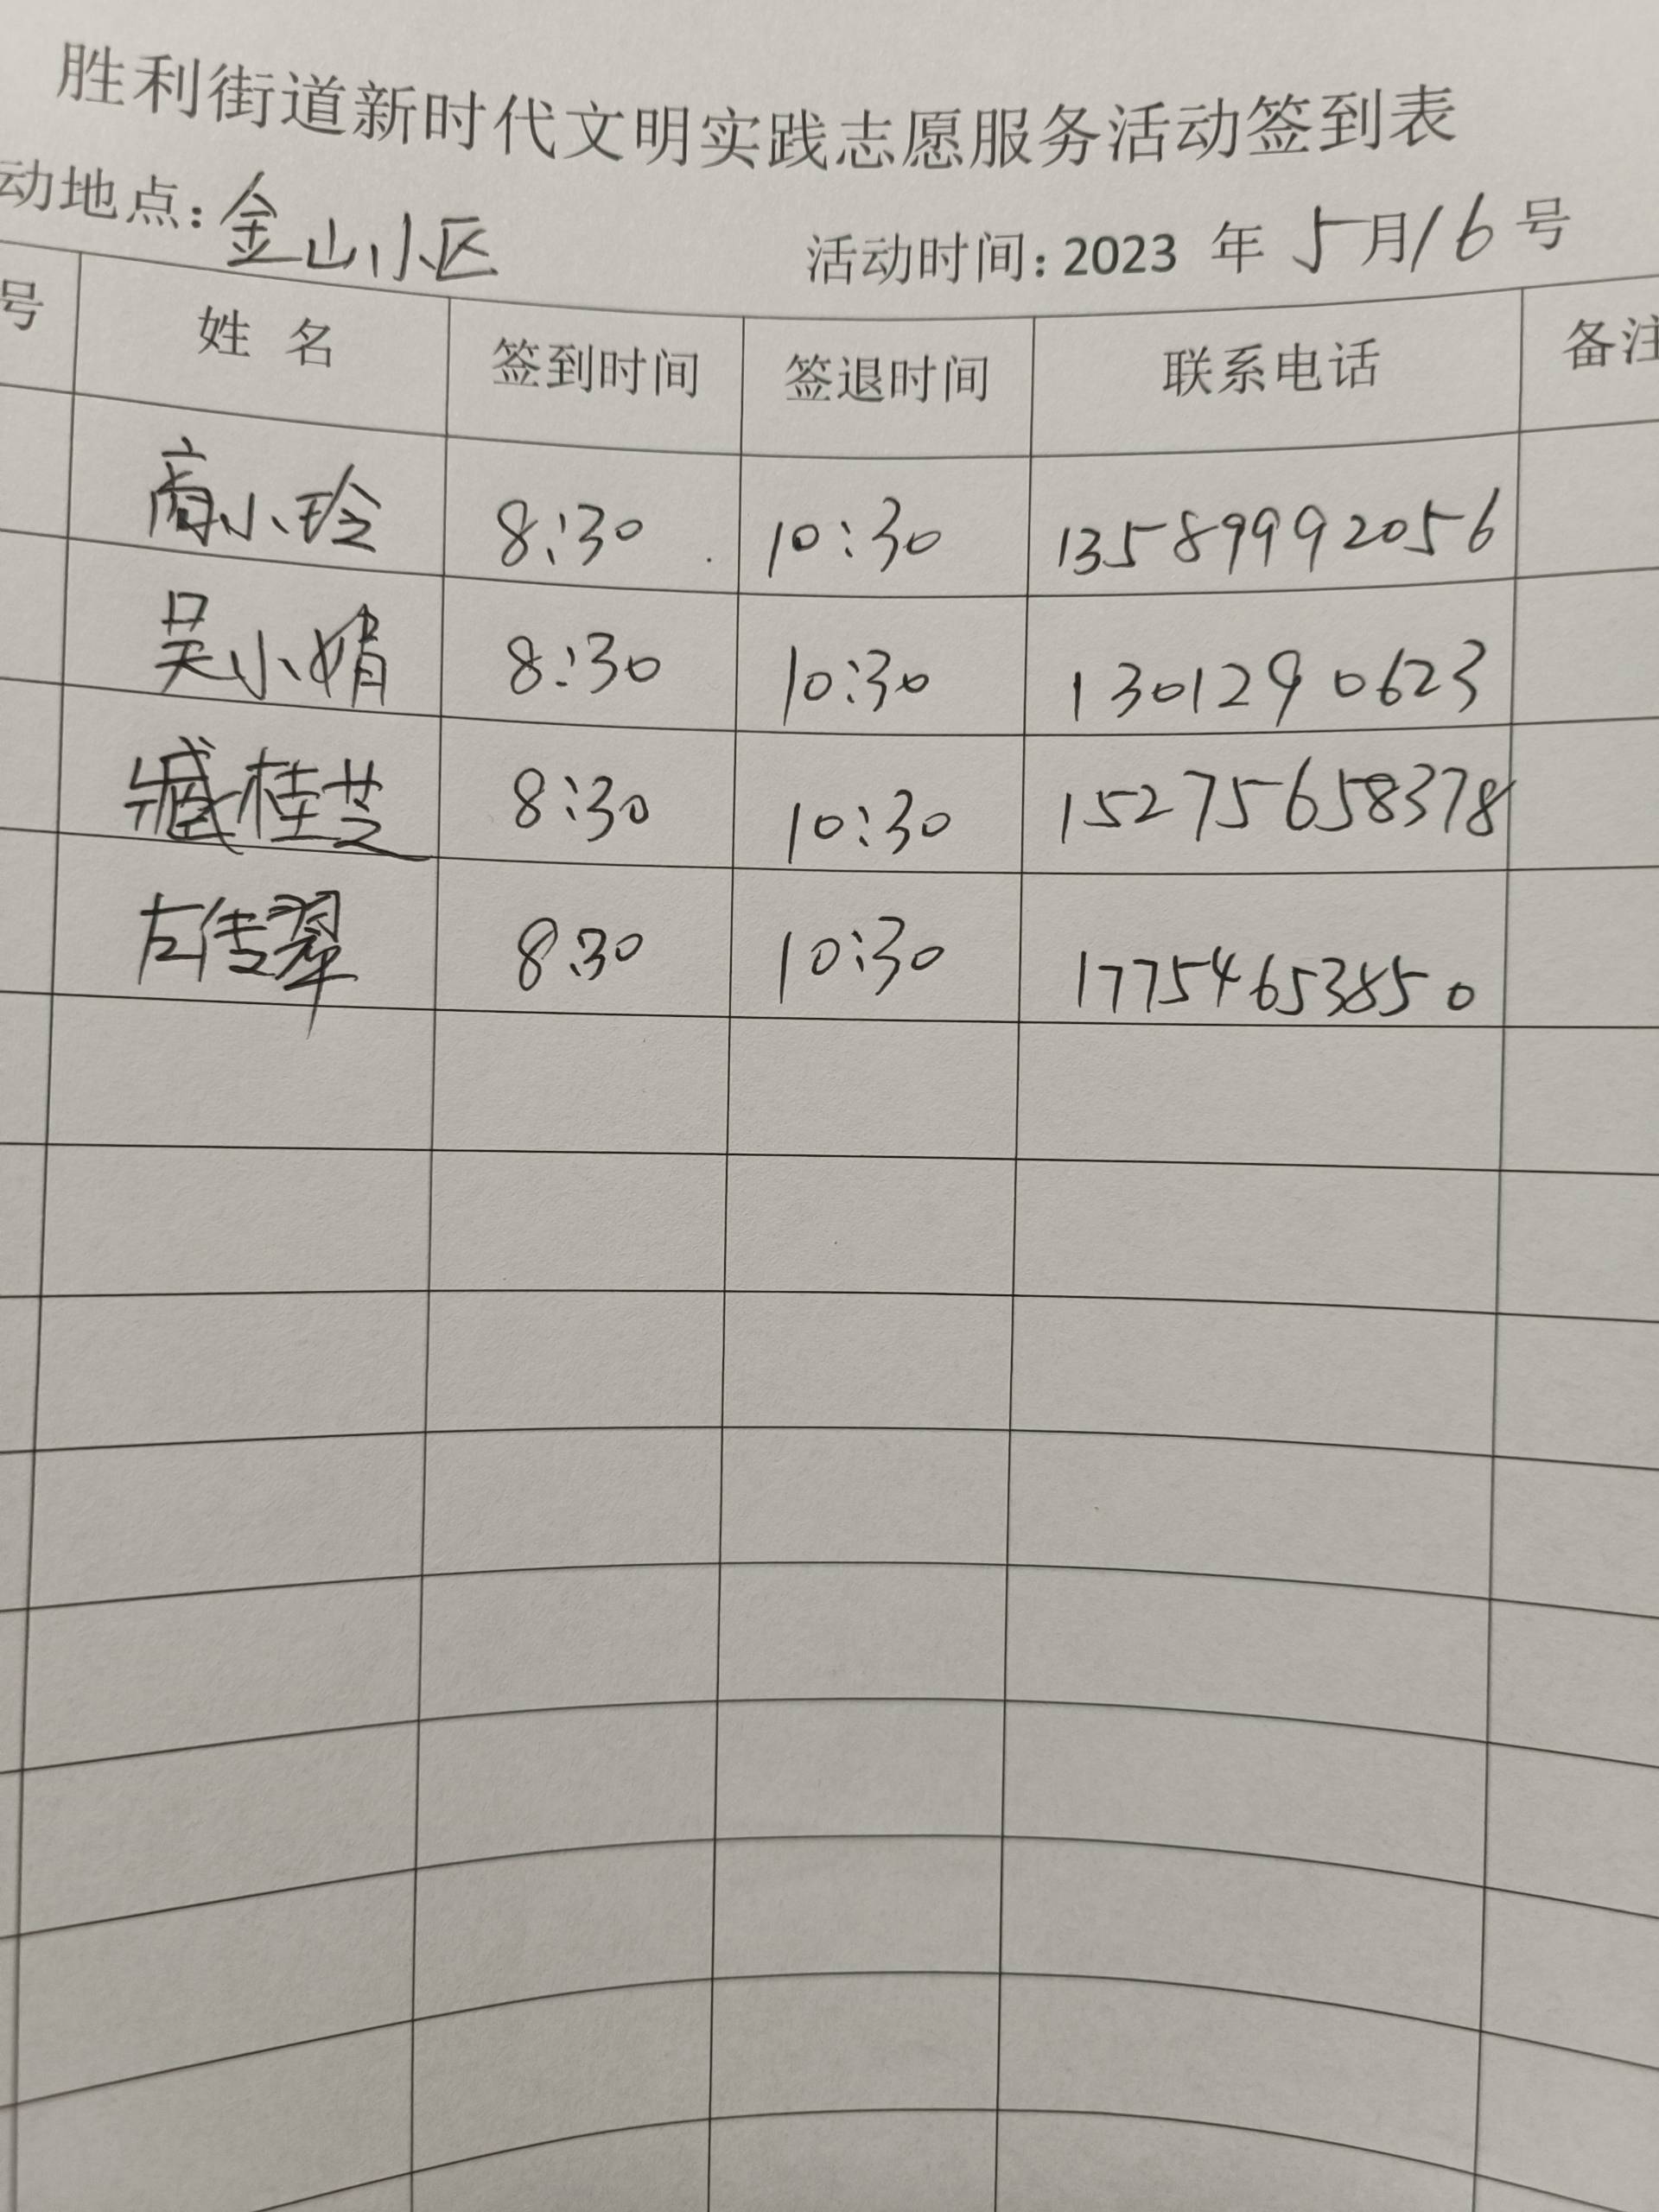 胜利街道新时代文明实践志愿服务活动签到表
动地点:金山小区 活动时间:2023 年 5月16号
号 姓 名 签到时间 签退时间 联系电话 备注
商小玲 8:30 10:30 13589992056
吴小娟 8:30 10:30 1301290623
臧桂芝 8:30 10:30 15275658378
左传翠 8:30 10:30 17754653850